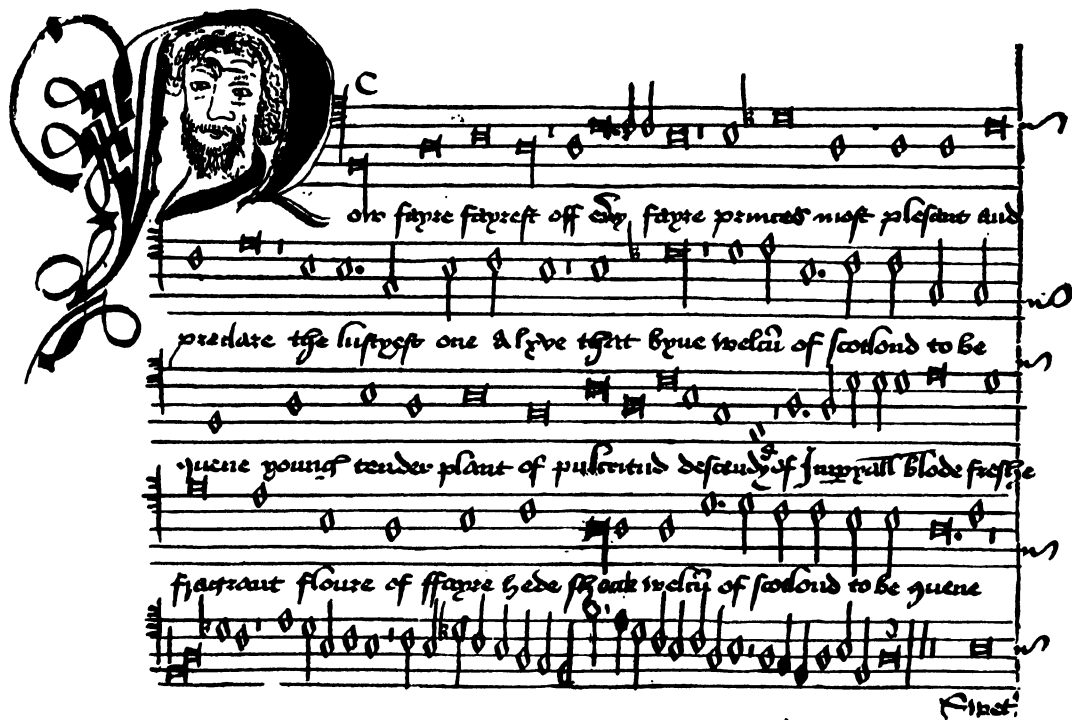 owr fayre fayrest off eu'y fayre princes most plesant and
preclare the lustyest one alyve that byne welcũ of scotlond to be
quene young tender plant of pulcritud descendyd of Imperiall blode freshe
fragrant floure of ffayre hede shene welcũ of scotlond to be quene